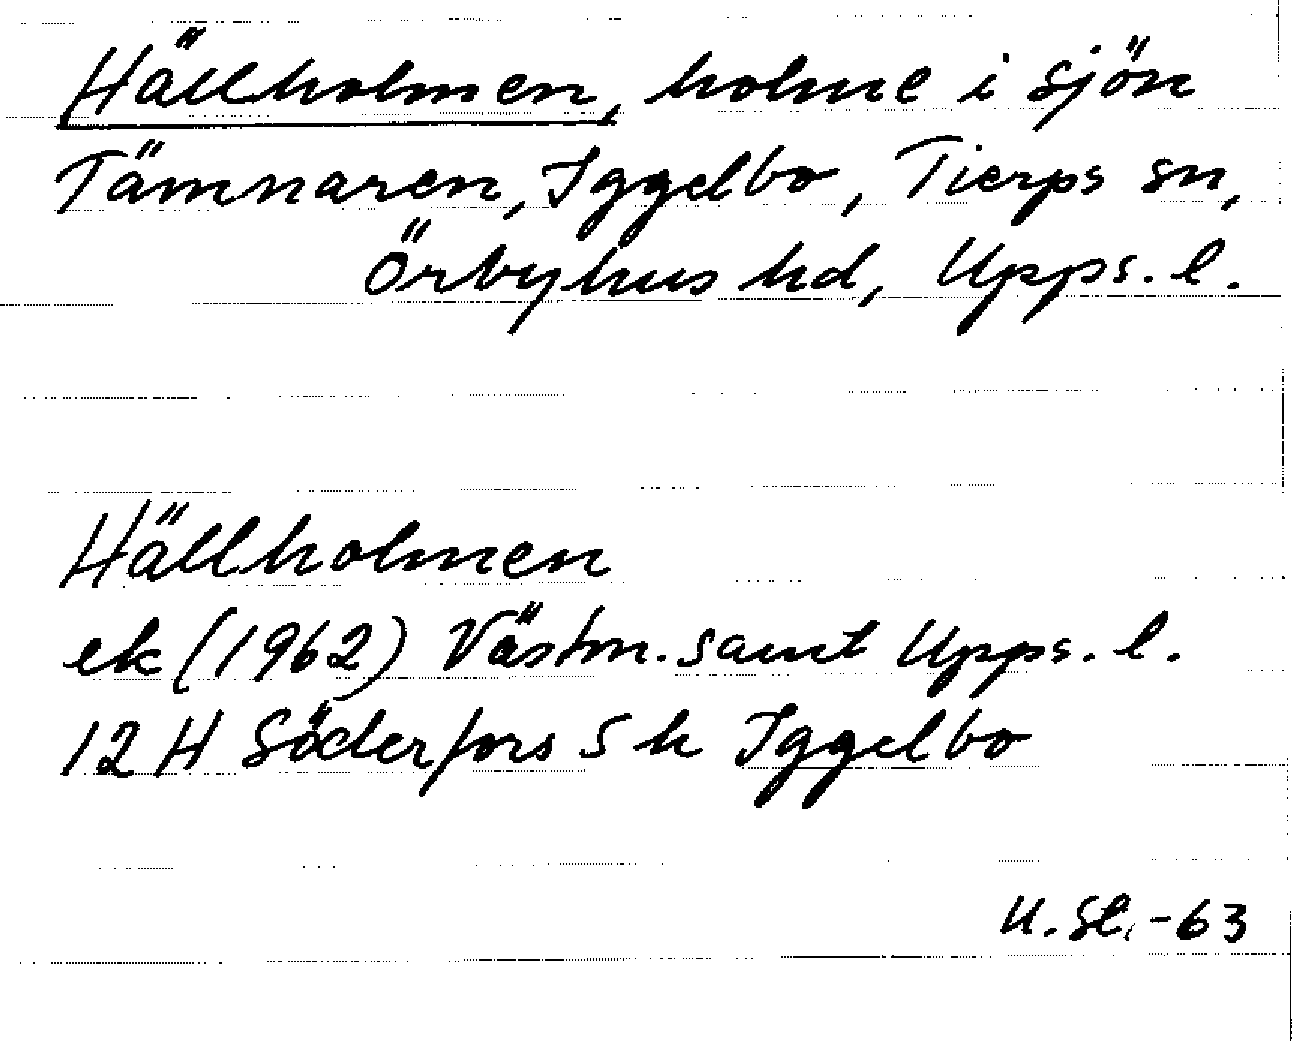 Hällholmen, holme i sjön
Tämnaren, Iggelbo, Tierps sn,
Örbyhus hd, Upps. l.
Hällholmen
ek (1962) Västm. samt Upps. l.
12 H Söderfors 5 h Iggelbo
U. Sl. -63